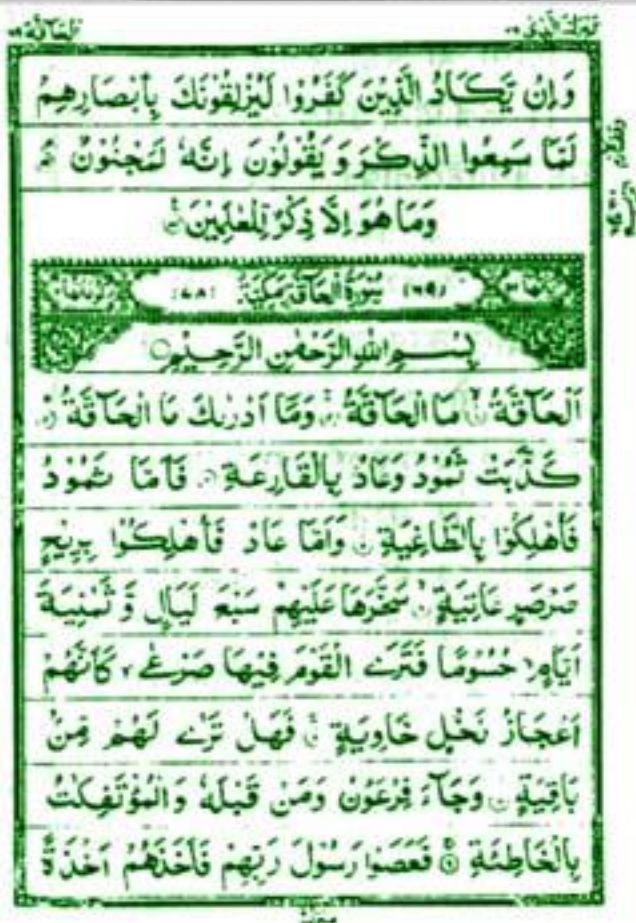 تبٰرك الذى ٢٩
الحآقة ٦٩
وَاِنْ يَّكَادُ الَّذِيْنَ كَفَرُوْا لَيُزْلِقُوْنَكَ بِاَبْصَارِهِمْ
لَمَّا سَمِعُوا الذِّكْرَ وَ يَقُوْلُوْنَ اِنَّهٗ لَمَجْنُوْنٌ ۘ
وَمَا هُوَ اِلَّا ذِكْرٌ لِّلْعٰلَمِيْنَ
سُوْرَةُ الْحَآقَّةِ مَكِّيَّةٌ
بِسْمِ اللهِ الرَّحْمٰنِ الرَّحِيْمِ
اَلْحَآقَّةُ مَا الْحَآقَّةُ وَمَآ اَدْرٰىكَ مَا الْحَآقَّةُ
كَذَّبَتْ ثَمُوْدُ وَعَادٌ بِالْقَارِعَةِ فَاَمَّا ثَمُوْدُ
فَاُهْلِكُوْا بِالطَّاغِيَةِ وَاَمَّا عَادٌ فَاُهْلِكُوْا بِرِيْحٍ
صَرْصَرٍ عَاتِيَةٍ سَخَّرَهَا عَلَيْهِمْ سَبْعَ لَيَالٍ وَّ ثَمٰنِيَةَ
اَيَّامٍ حُسُوْمًا فَتَرَى الْقَوْمَ فِيْهَا صَرْعٰى كَاَنَّهُمْ
اَعْجَازُ نَخْلٍ خَاوِيَةٍ فَهَلْ تَرٰى لَهُمْ مِّنْ
بَاقِيَةٍ وَجَآءَ فِرْعَوْنُ وَمَنْ قَبْلَهٗ وَالْمُؤْتَفِكٰتُ
بِالْخَاطِئَةِ فَعَصَوْا رَسُوْلَ رَبِّهِمْ فَاَخَذَهُمْ اَخْذَةً